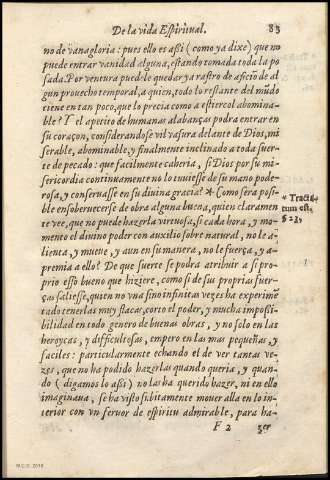 De la vida Espiritual. 83
no de vanagloria : pues ello es assi ( como ya dixe) que no
puede entrar vanidad alguna, estando tomada toda la po
sada. Por ventura puedele quedar ya rastro de aficiõ de al
gun provecho temporal, a quien, todo lo restante del mũdo
tiene en tan poco, que lo precia como a estiercol abomina-
ble? Y el apetito de humanas alabanças podra entrar en
su coraçon, considerandose vil vasura delante de Dios, mi
serable, abominable, y finalmente inclinado a toda suer-
te de pecado : que facilmente caberia, si Dios por su mi-
sericordia continuamente no lo tuuiesse de su mano pode-
rosa, y conseruasse en su diuina gracia? * Como sera posi-
ble ensoberuecerse de obra alguna buena, quien claramen
te vee, que no puede hazerla virtuosa, si cada hora, y mo-
mento el diuino poder con auxilio sobre natural, no le a-
lienta, y mueue, y aun en su manera, no le fuerça, y a-
premia a ello? De que suerte se podra atribuir a si pro-
prio esso bueno que hiziere, como si de sus proprias fuer-
ças saliesse, quien no vna sino infinitas vezes ha experimẽ
tado tenerlas muy flacas, corto el poder, y mucha imposi-
bilidad en todo genero de buenas obras, y no solo en las
heroycas, y dificultosas, empero en las mas pequeñas, y
faciles : particularmente echando el de ver tantas ve-
zes, que no ha podido hazerlas quando queria, y quan-
do ( digamos lo assi ) no las ha querido hazer, ni en ello
imaginaua, se ha visto subitamente mouer alla en lo in-
terior con vn feruor de espiritu admirable, para ha-
F 2 zer
* Tracta-
tum est,
§ 23.
M.C.D. 2018